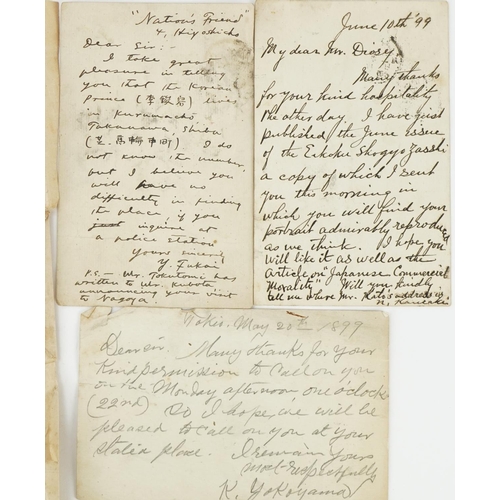 "Nation's Friend"
4, Hiyoshicho
Dear Sir:-
I take great
pleasure in telling
you that the Korean
Prince (李鎔) lives
in Kurumacho
Takanawa, Shiba
(芝、高輪車町) I do
not know the number
but I believe you
will have no
difficulty in finding
the place, if you
inquire at
a police station
Yours sincerely
Y. Fukai
P.S.- Mr. Tokutomi has
written to Mr. Kubota
announcing your visit
to Nagoya.
June 10th '99
My dear Mr. Diosy,
Many thanks
for your kind hospitality
the other day. I have just
published the June issue
of the Eikoku Shogyo Zasshi
a copy of which I sent
you this morning in
which you will find your
portrait admirably reproduced
as we think. I hope you
will like it as well as the
Article on "Japanese Commercial
Morality". Will you kindly
tell me where Mr. Kato's address is.
Tokio. May 20th 1899
Dear sir. Many thanks for your
kind permission to call on you
on the Monday afternoon, one o'clock
(22nd). So I hope, we will be
pleased to call on you at your
stated place. I remain yours
most-respectfully
K. Yokoyama